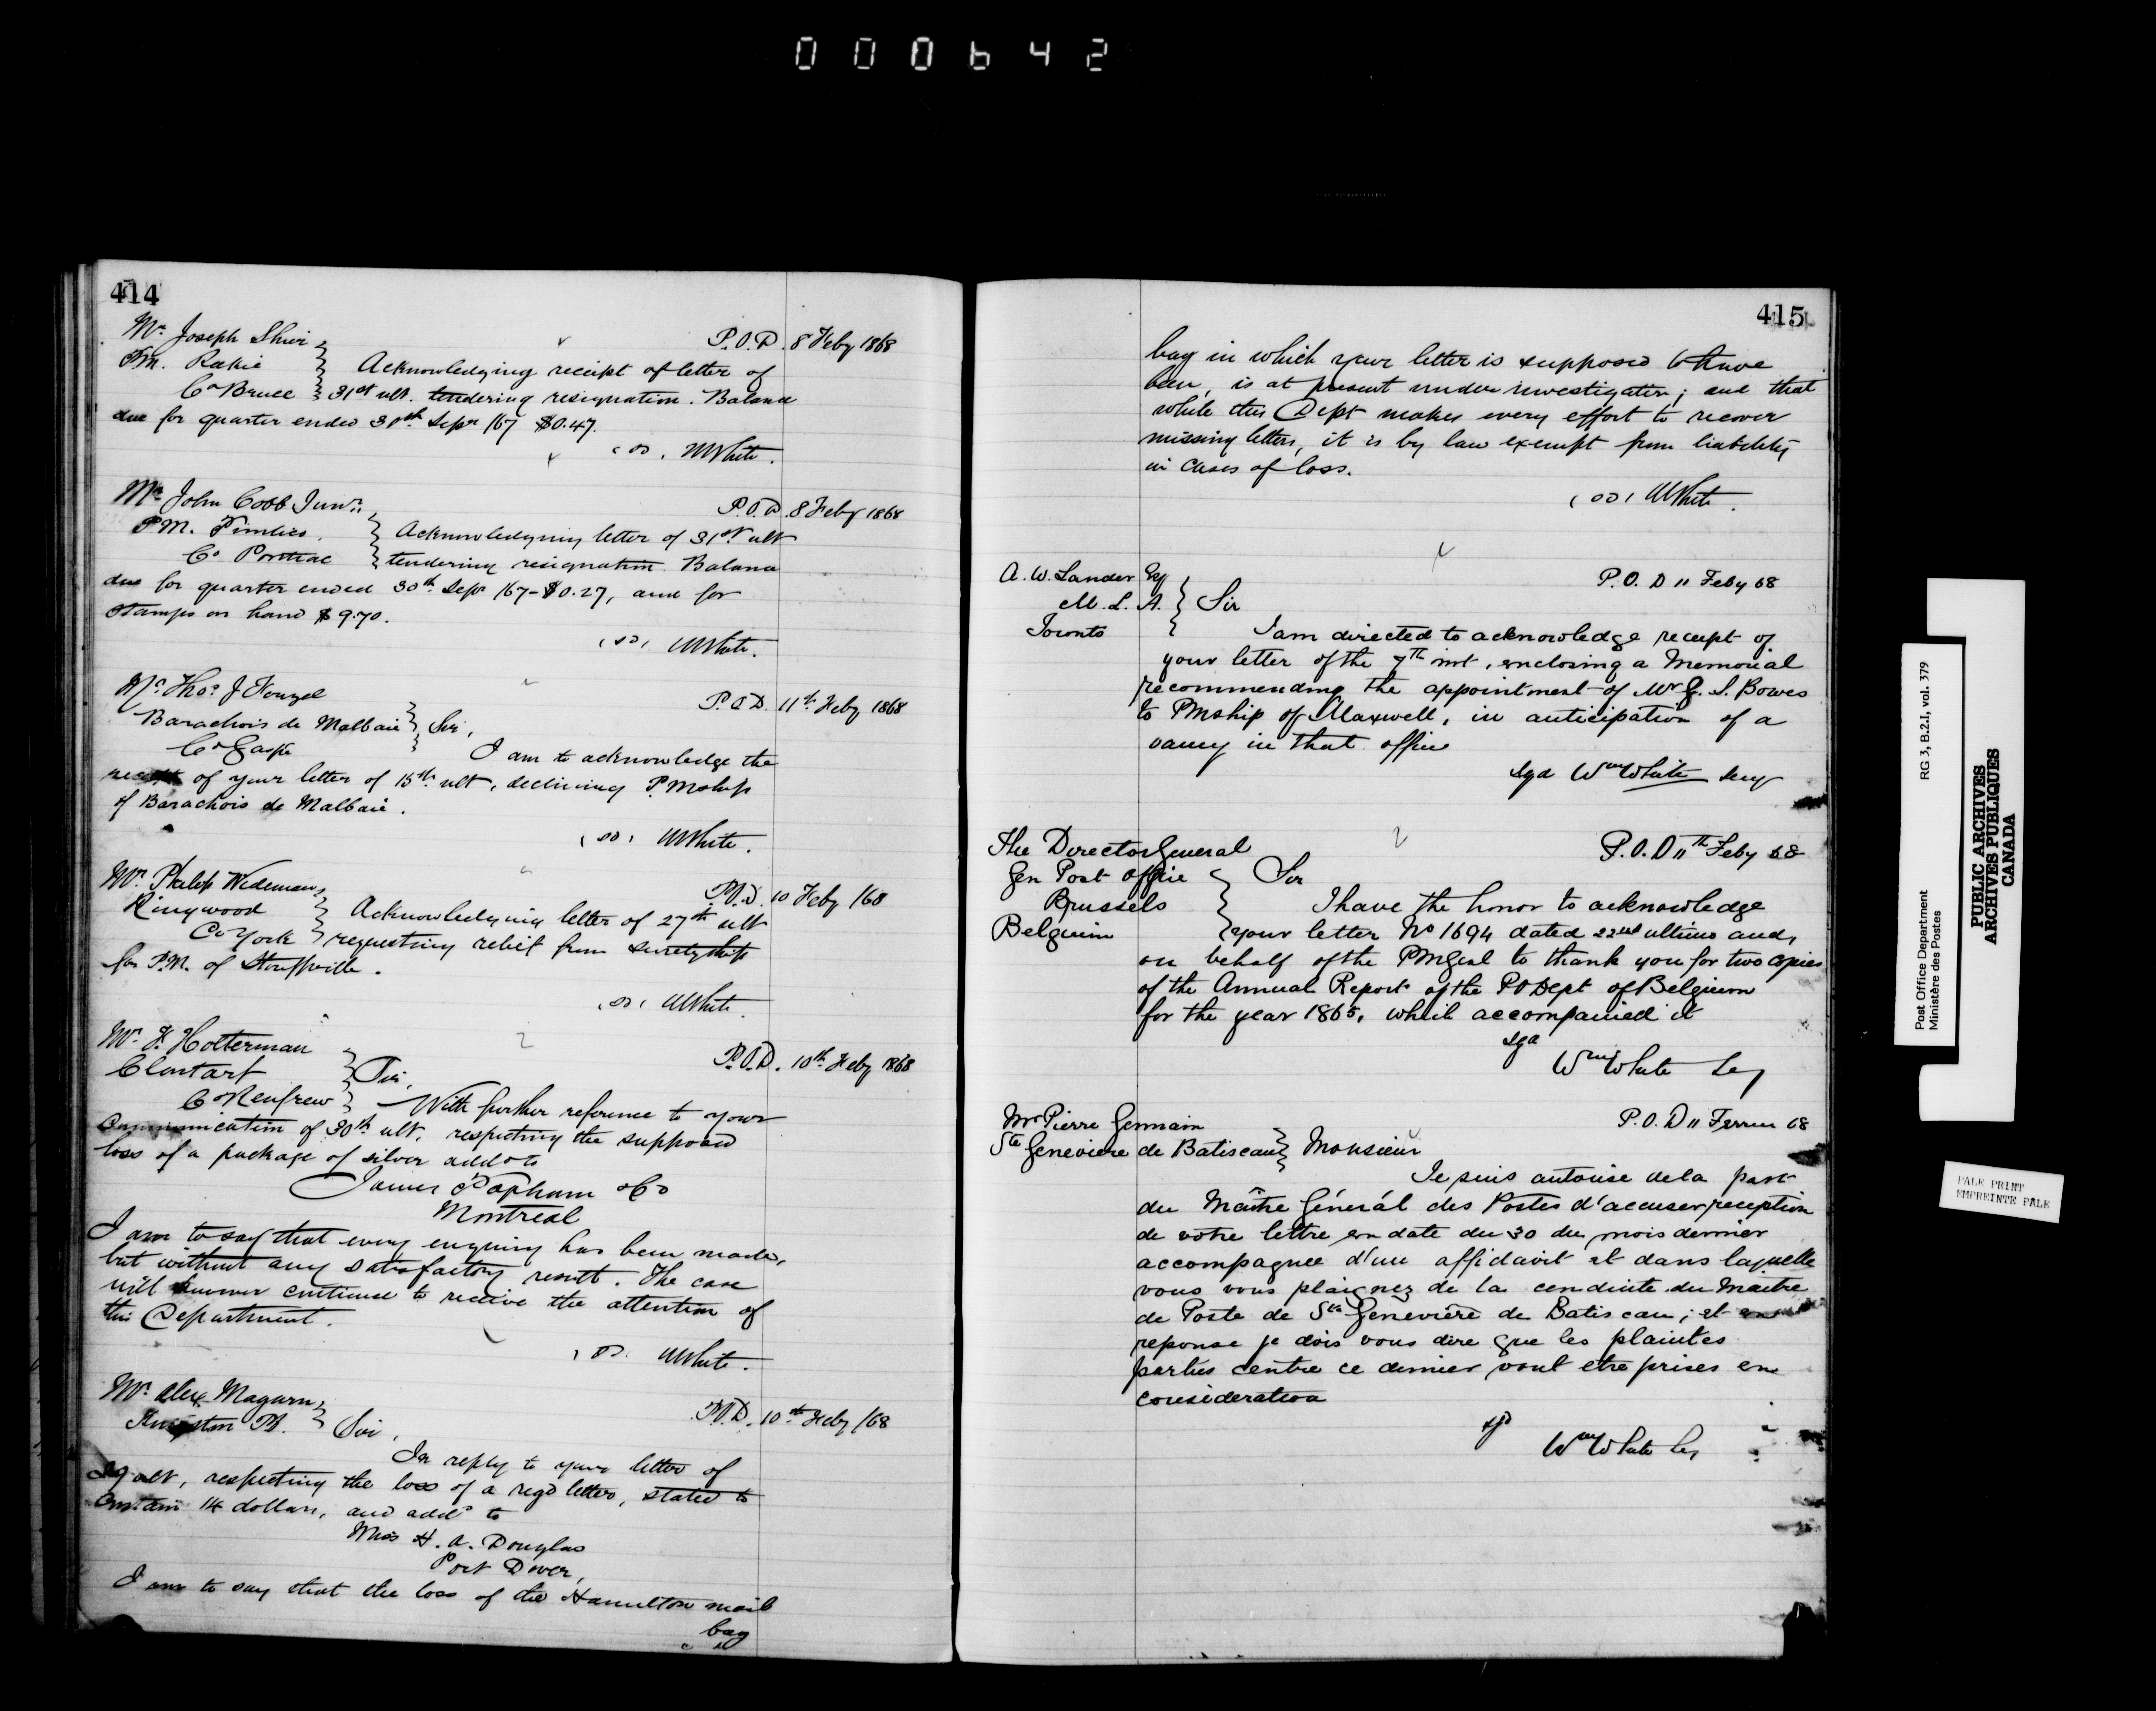 000642
414
Mr. Joseph Shier
P.O.D. 8 Feby 1868
PM. Acknowledging receipt of letter of
Co Bruce 31st ult. tendering resignation. Balance
due for quarter ended 30th Sepr /67 $0.47.
(SD) WWhite.
Mr John Cobb Junr.
P.O.D. 8 Feby 1868
P.M. Acknowledging letter of 31st ult
Co Pontiac tendering resignation Balance
due for quarter ended 30th Sepr /67 - $0.27, and for
stamps on hand $9.70.
(SD) WWhite.
Mr. Thos. J
P.O.D. 11th Feby 1868
Barachois de Malbaie Sir,
Co Gaspé I am to acknowledge the
receipt of your letter of 15th ult, declining P.Mship
of Barachois de Malbaie.
(SD) WWhite.
Mr. Philip Wideman
P.O.D. 10 Feby /68
Ringwood Acknowledging letter of 27th ult
Co York requesting relief from suretyship
for P.M. of Stouffville.
(SD) WWhite.
Mr. F. Holterman
P.O.D. 10th Feby 1868
Clontarf Sir,
Co Renfrew With further reference to your
communication of 30th ult, respecting the supposed
loss of a package of silver addd to
James Popham & Co
Montreal
I am to say that every enquiry has been made,
but without any satisfactory result. The case
will however continue to receive the attention of
this Department.
(SD) WWhite.
Mr. Alex. Magurn
P.O.D. 10th Feby /68
Kingston Sir,
In reply to your letter of
29 ult, respecting the loss of a regd letter, stated to
contain 14 dollars, and addd to
Miss H. A. Douglas
Port Dover,
I am to say that the loss of the Hamilton mail
bag
415
bag in which your letter is supposed to have
been, is at present under investigation; and that
while this Dept makes every effort to recover
missing letters, it is by law exempt from liability
in cases of loss.
(SD) WWhite.
A. W. Lauder Esq
P.O.D 11 Feby 68
M.L.A. Sir
Toronto
I am directed to acknowledge receipt of
your letter of the 7th inst, enclosing a Memorial
recommending the appointment of Mr G. S. Bowes
to PMship of Maxwell, in anticipation of a
vancy in that office
Sgd Wm White Secy
The Director General
P.O.D 11th Feby 68
Gen Post Office Sir
Brussels I have the honor to acknowledge
Belguim your letter No 1694 dated 22nd ultimo and,
on behalf of the PMGenl to thank you for two copies
of the Annual Report of the PO Dept of Belgium
for the year 1865, which accompanied it
Sgd
Wm White Secy
Mr Pierre Germain
P.O.D 11 Fevrier 68
Ste Genevieve de Batiscan Monsieur
Je suis autorise de la part
du Maître Général des Postes d'accuser reception
de votre lettre en date du 30 du mois dernier
accompagnee d'un affidavit et dans laquelle
vous vous plaignez de la conduite du Maître
de Poste de Ste Genevière de Batiscan; et en
reponse je dois vous dire que les plaintes
portées contre ce dernier vont etre prises en
consideration
sgd
Wm White Secy
Post Office Department
Ministère des Postes
RG 3, B.2.I, vol. 379
PUBLIC ARCHIVES
ARCHIVES PUBLIQUES
CANADA
PALE PRINT
EMPREINTE PALE